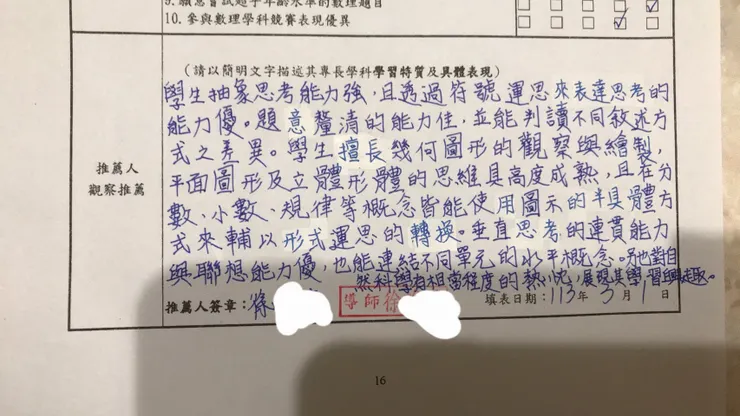 9.願意嘗試超乎年齡水準的數理題目
10.參與數理學科競賽表現優異
(請以簡明文字描述其專長學科學習特質及具體表現)
學生抽象思考能力強，且透過符號運思來表達思考的
能力優。題意釐清的能力佳，並能判讀不同敘述方
式之差異。學生擅長幾何圖形的觀察與繪製，
平面圖形及立體形體的思維具高度成熟，且在分
數、小數、規律等概念皆能使用圖示的半具體方
式來輔以形式運思的轉換。垂直思考的連貫能力
與聯想能力優，也能連結不同單元的水平概念。他對自
然科學有相當程度的熱忱，展現其學習興趣。
推薦人
觀察推薦
推薦人簽章：徐
導師徐
填表日期：113年3月1日
16